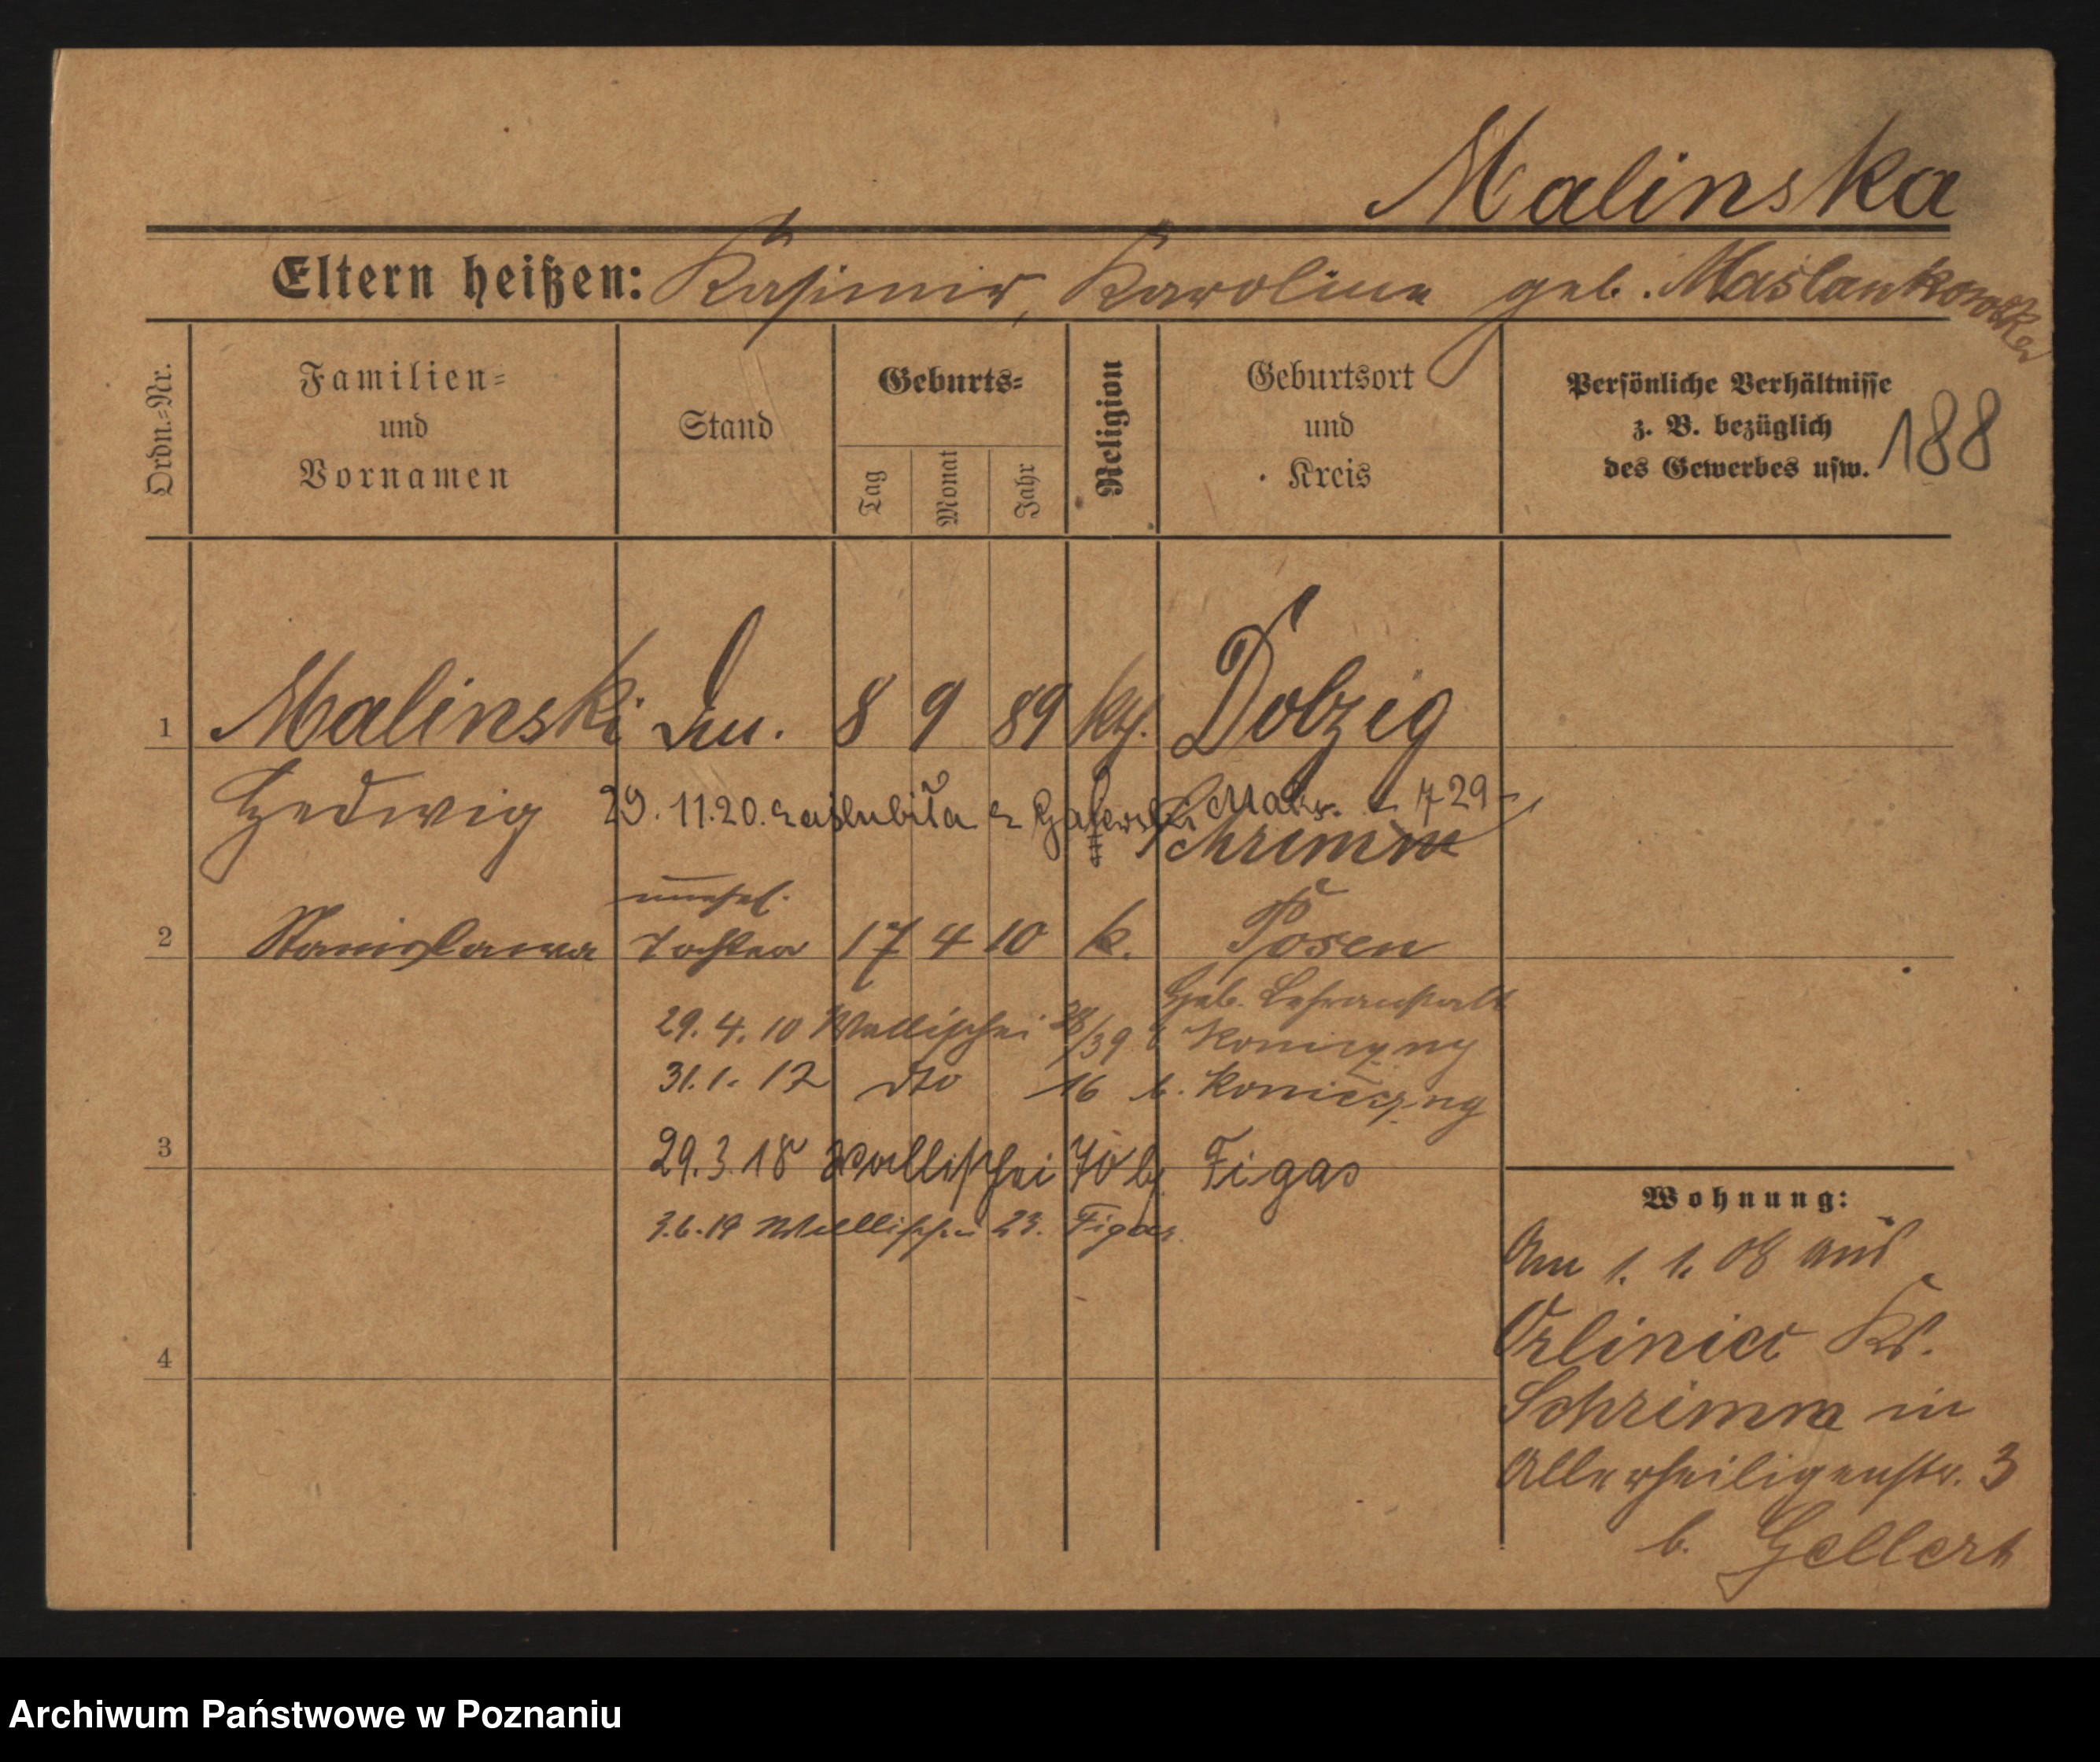 Malinska
Eltern heißen: Kasimir, Karolina geb. Maslankowska
Ordn.=Nr.
Familien=
und
Vornamen
Stand
Geburts=
Tag
Monat
Jahr
Religion
Geburtsort
und
Kreis
Persönliche Verhältnisse
z. B. bezüglich
des Gewerbes usw.
188
1 Malinski 8 9 89 kth. Dolzig
Hedwig 29. 11. 20. zaślubiła z 29
Schrimm
unehel.
2 Stanislawa Tochter 17 4 10 k. Posen
Geb. Lehranstalt
29. 4. 10 Wallischei 38/39 b Konieczny
31. 1. 12 dto 16 b. Konieczny
3 29. 3. 18 Wallischei 70 by Figas
3. 6. 19 Wallischei 23. Figas.
4
Wohnung:
Am 1. 1. 08 aus
Kr.
Schrimm in
Allerheiligenstr. 3
b. Gellert
Archiwum Państwowe w Poznaniu